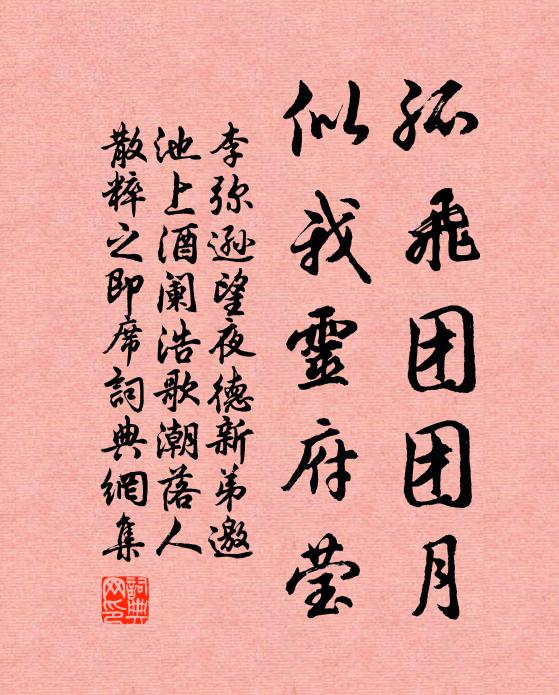 孤飛团团月
似我靈府莹
李弥遜望夜德新弟邀
池上酒阑浩歌潮落人
散粹之即席詞典網集
詞典网印